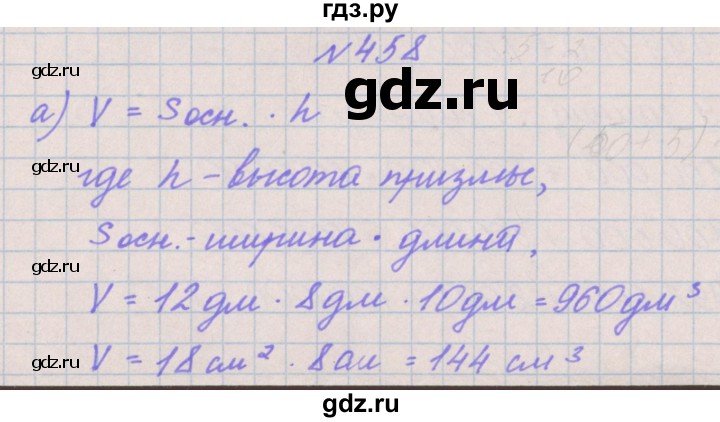 гдз.ру
№458
gdz.ru
gdz.ru
а) V = Sосн. · h
gdz.ru
где h - высота призмы,
Sосн. - ширина · длина,
gdz.ru
V = 12 дм · 8 дм · 10 дм = 960 дм³
V = 18 см² · 8 см = 144 см³
gdz.ru
gdz.ru